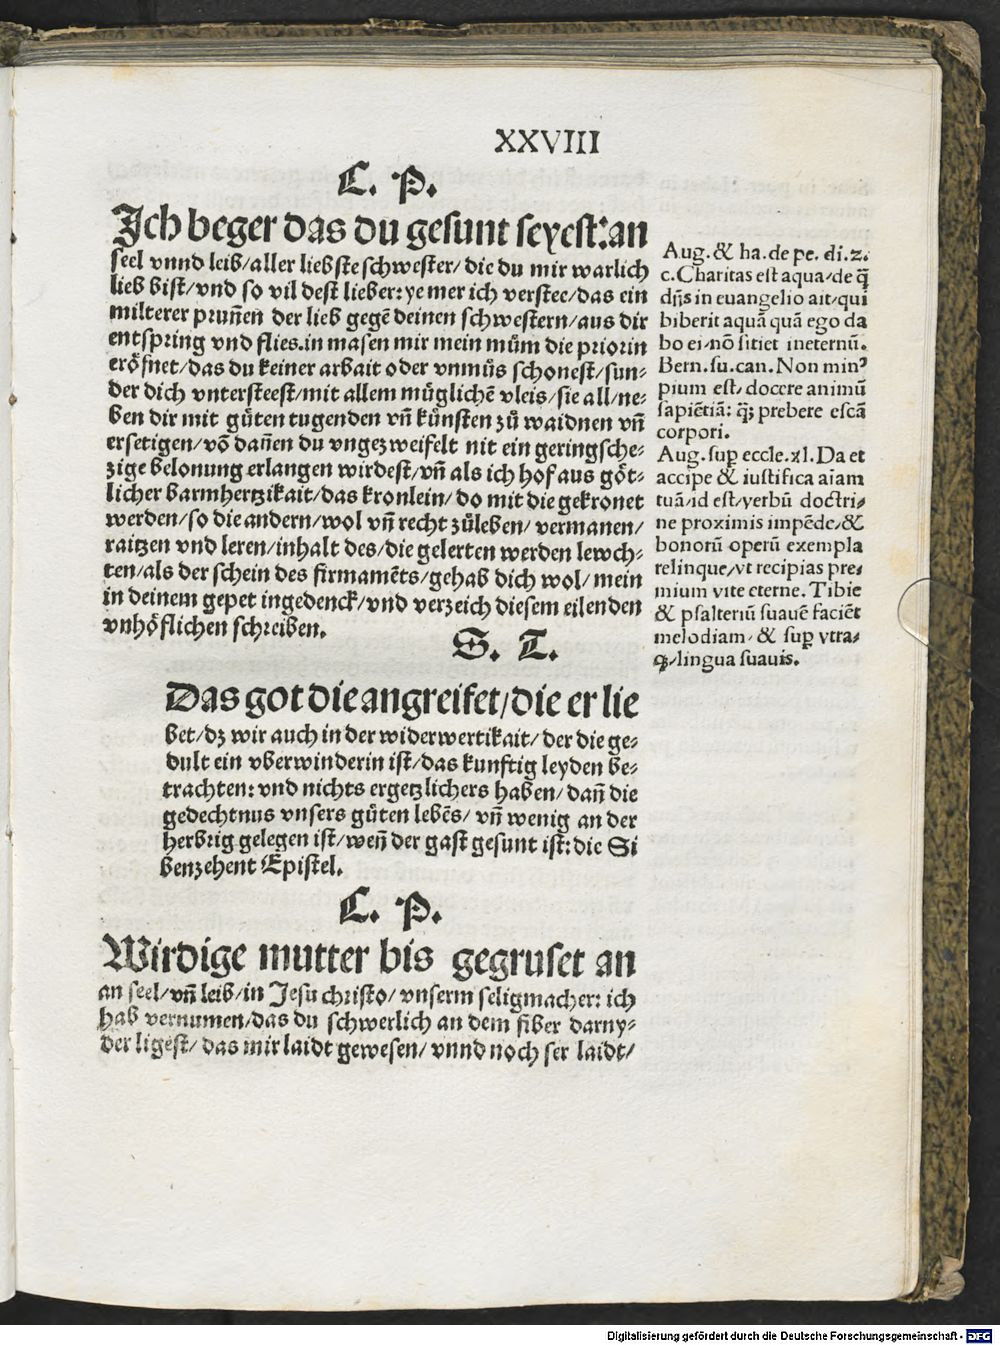 XXVIII
C. P.
Ich beger das du gesunt seyest: an
seel vnnd leib/aller liebste schwester/die du mir warlich
lieb bist/vnd so vil dest lieber: ye mer ich verstee/das ein
milterer pruñen der lieb gegē deinen schwestern/aus dir
entspring vnd flies. in masen mir mein mům die priorin
eröfnet/das du keiner arbait oder vnmůs schonest/sun-
der dich vntersteest/mit allem müglichē vleis/sie all/ne-
ben dir mit gůten tugenden vñ kůnsten zů waidnen vñ
ersetigen/võ dañen du vngezweifelt nit ein geringsche-
zige belonung erlangen wirdest/vñ als ich hof aus göt-
licher barmhertzikait/das kronlein/do mit die gekronet
werden/so die andern/wol vñ recht zůleben/vermanen/
raitzen vnd leren/inhalt des/die gelerten werden lewch-
ten/als der schein des firmamēts/gehab dich wol/mein
in deinem gepet ingedenck/vnd verzeich diesem eilenden
vnhöflichen schreiben.
S. T.
Das got die angreifet/die er lie
bet/dz wir auch in der widerwertikait/der die ge-
dult ein vberwinderin ist/das kunftig leyden be-
trachten: vnd nichts ergetzlichers haben/dañ die
gedechtnus vnsers gůten lebēs/vñ wenig an der
herbrig gelegen ist/weñ der gast gesunt ist: die Si
benzehent Epistel.
C. P.
Wirdige mutter bis gegruset an
an seel/vñ leib/in Jesu christo/vnserm seligmacher: ich
hab vernumen/das du schwerlich an dem fiber darny-
der ligest/das mir laidt gewesen/vnnd noch ser laidt/
Aug. & ha. de pe. di. 2.
c. Charitas est aqua/de q̃
dñs in euangelio ait/qui
biberit aquã quã ego da
bo ei/nõ sitiet ineternũ.
Bern. su. can. Non minꝰ
pium est/docere animũ
sapiẽtiã: q̃ꝫ prebere escã
corpori.
Aug. sup eccle. xl. Da et
accipe & iustifica aiam
tuã/id est/verbũ doctri-
ne proximis impẽde/&
bonorũ operũ exempla
relinque/vt recipias pre-
mium vite eterne. Tibie
& psalteriũ suauẽ faciẽt
melodiam/& sup vtra-
qꝫ/lingua suauis.
Digitalisierung gefördert durch die Deutsche Forschungsgemeinschaft - DFG